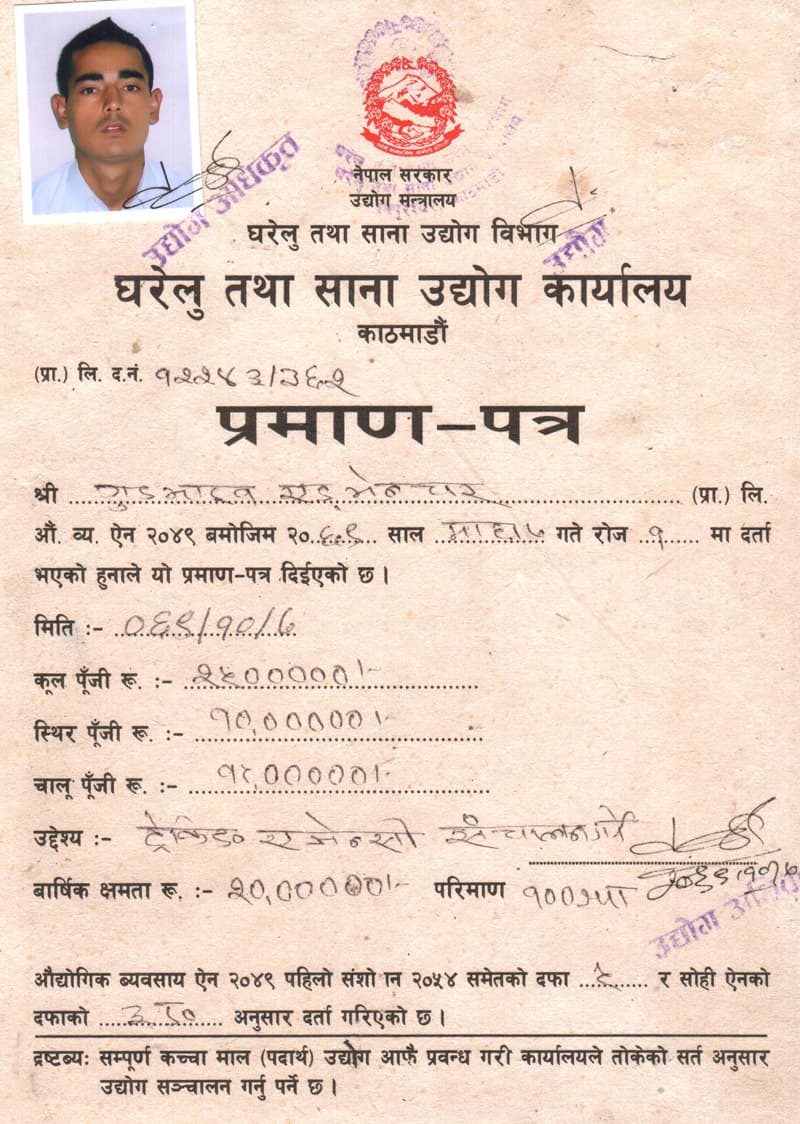 नेपाल सरकार
उद्योग मन्त्रालय
घरेलु तथा साना उद्योग विभाग
उद्योग अधिकृत
उद्योग
घरेलु तथा साना उद्योग कार्यालय
काठमाडौं
(प्रा.) लि. द.नं. १२२४३/३६२
प्रमाण-पत्र
श्री (प्रा.) लि.
औं. व्य. ऐन २०४९ बमोजिम २०६९ साल माघ ७ गते रोज १ मा दर्ता
भएको हुनाले यो प्रमाण-पत्र दिईएको छ ।
मिति :- ०६९/१०/७
कूल पूँजी रू. :- २५०००००।-
स्थिर पूँजी रू. :- १०,०००००।-
चालू पूँजी रू. :- १५,०००००।-
उद्देश्य :- ट्रेकिङ एजेन्सी संचालन गर्ने
बार्षिक क्षमता रू. :- २०,०००००।- परिमाण १००
उद्योग
औद्योगिक ब्यवसाय ऐन २०४९ पहिलो संशो ान २०५४ समेतको दफा ९ र सोही ऐनको
दफाको अनुसार दर्ता गरिएको छ ।
द्रष्टब्यः सम्पूर्ण कच्चा माल (पदार्थ) उद्योग आफै प्रवन्ध गरी कार्यालयले तोकेको सर्त अनुसार
उद्योग सञ्चालन गर्नु पर्ने छ ।